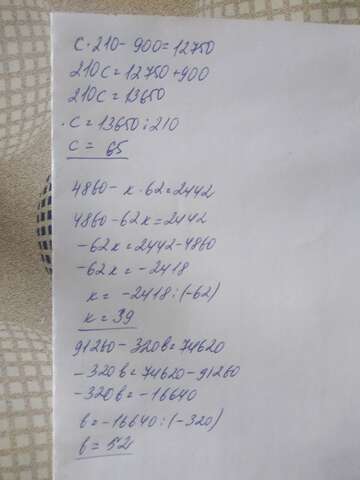 c · 210 - 900 = 12750
210c = 12750 + 900
210c = 13650
c = 13650 : 210
c = 65
4860 - к · 62 = 2442
4860 - 62к = 2442
-62к = 2442 - 4860
-62к = -2418
к = -2418 : (-62)
к = 39
91260 - 320в = 74620
-320в = 74620 - 91260
-320в = -16640
в = -16640 : (-320)
в = 52